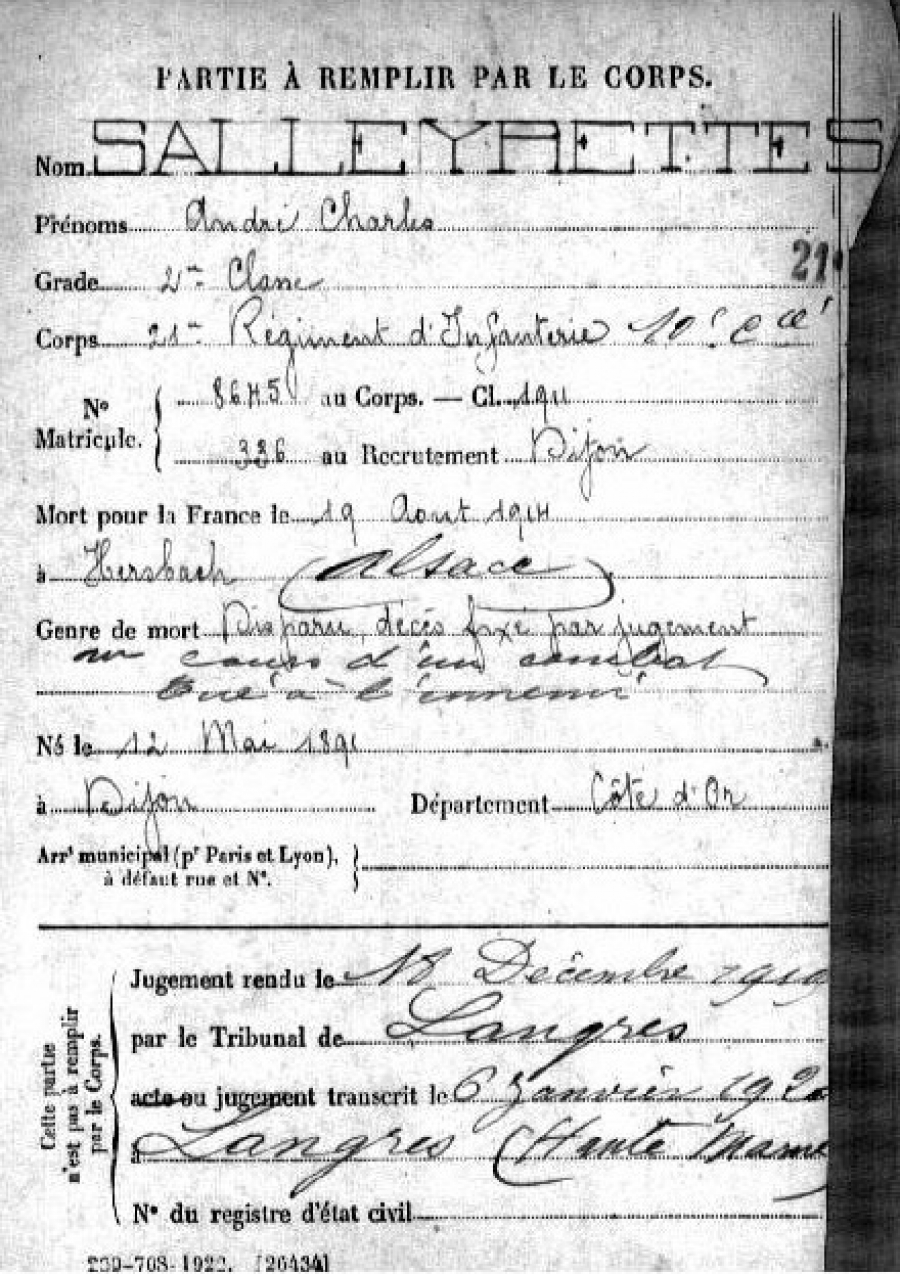 PARTIE À REMPLIR PAR LE CORPS.
Nom SALLEYRETTES
Prénoms André Charles
21
Grade 2me Classe
Corps 21me Régiment d'Infanterie 10e Cie
No Matricule.
8645 au Corps. — Cl. 1911
336 au Recrutement Dijon
Mort pour la France le 19 Aout 1914
à Hersbach (Alsace)
Genre de mort Disparu, décés fixé par jugement
au cours d'un combat
tué à l'ennemi
Né le 12 Mai 1891
à Dijon Département Côte d'Or
Arrt municipal (pr Paris et Lyon),
à défaut rue et No.
Cette partie
n'est pas à remplir
par le Corps.
Jugement rendu le 18 Décembre 1919
par le Tribunal de Langres
acte ou jugement transcrit le 6 Janvier 1920
à Langres (Haute Marne
No du registre d'état civil
239-708-1922. [26434]